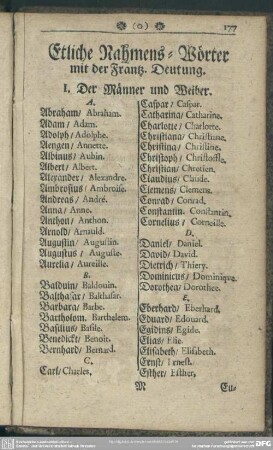 (o)
177
Etliche Nahmens-Wörter
mit der Frantz. Deutung.
I. Der Männer und Weiber.
A.
Abraham/ Abraham.
Adam/ Adam.
Adolph/ Adolphe.
Aengen/ Annette.
Albinus/ Aubin.
Albert/ Albert.
Alexander/ Alexandre.
Ambrosius/ Ambroise.
Andreas/ André.
Anna/ Anne.
Anthon/ Anthon.
Arnold/ Arnauld.
Augustin/ Augustin.
Augustus/ Auguste.
Aurelia/ Aureille.
B.
Balduin/ Baldouin.
Balthasar/ Balthasar.
Barbara/ Barbe.
Bartholom. Barthelem.
Basilius/ Basile.
Benedickt/ Benoit.
Bernhard/ Bernard.
C.
Carl/ Charles,
Caspar/ Caspar.
Catharina/ Catharine.
Charlotte/ Charlotte.
Christiana/ Christiane.
Christina/ Christine.
Christoph/ Christoffle.
Christian/ Chretien.
Claudius/ Claude.
Clemens/ Clemens.
Conrad/ Conrad,
Constantin. Constantin,
Cornelius/ Corneille.
D.
Daniel/ Daniel.
David/ David.
Dietrich/ Thiery.
Dominicus/ Dominique.
Dorothea/ Dorothee.
E.
Eberhard/ Eberhard.
Eduard/ Edouard.
Egidius/ Egide.
Elias/ Elie.
Elisabeth/ Elisabeth.
Ernst/ Ernest.
Esther/ Esther,
M
Eu-